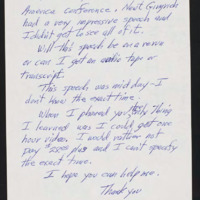 America conference. Newt Gingrich
had a very impressive speech and
I didn't get to see all of it.
Will this speech be on a rerun
or can I get an audio tape or
transcript.
This speech was mid day - I
don't know the exact time.
When I phoned you, the only thing
I learned was I could get one
hour video. I would rather not
pay plus and I can't specify
the exact time.
I hope you can help me.
Thank you